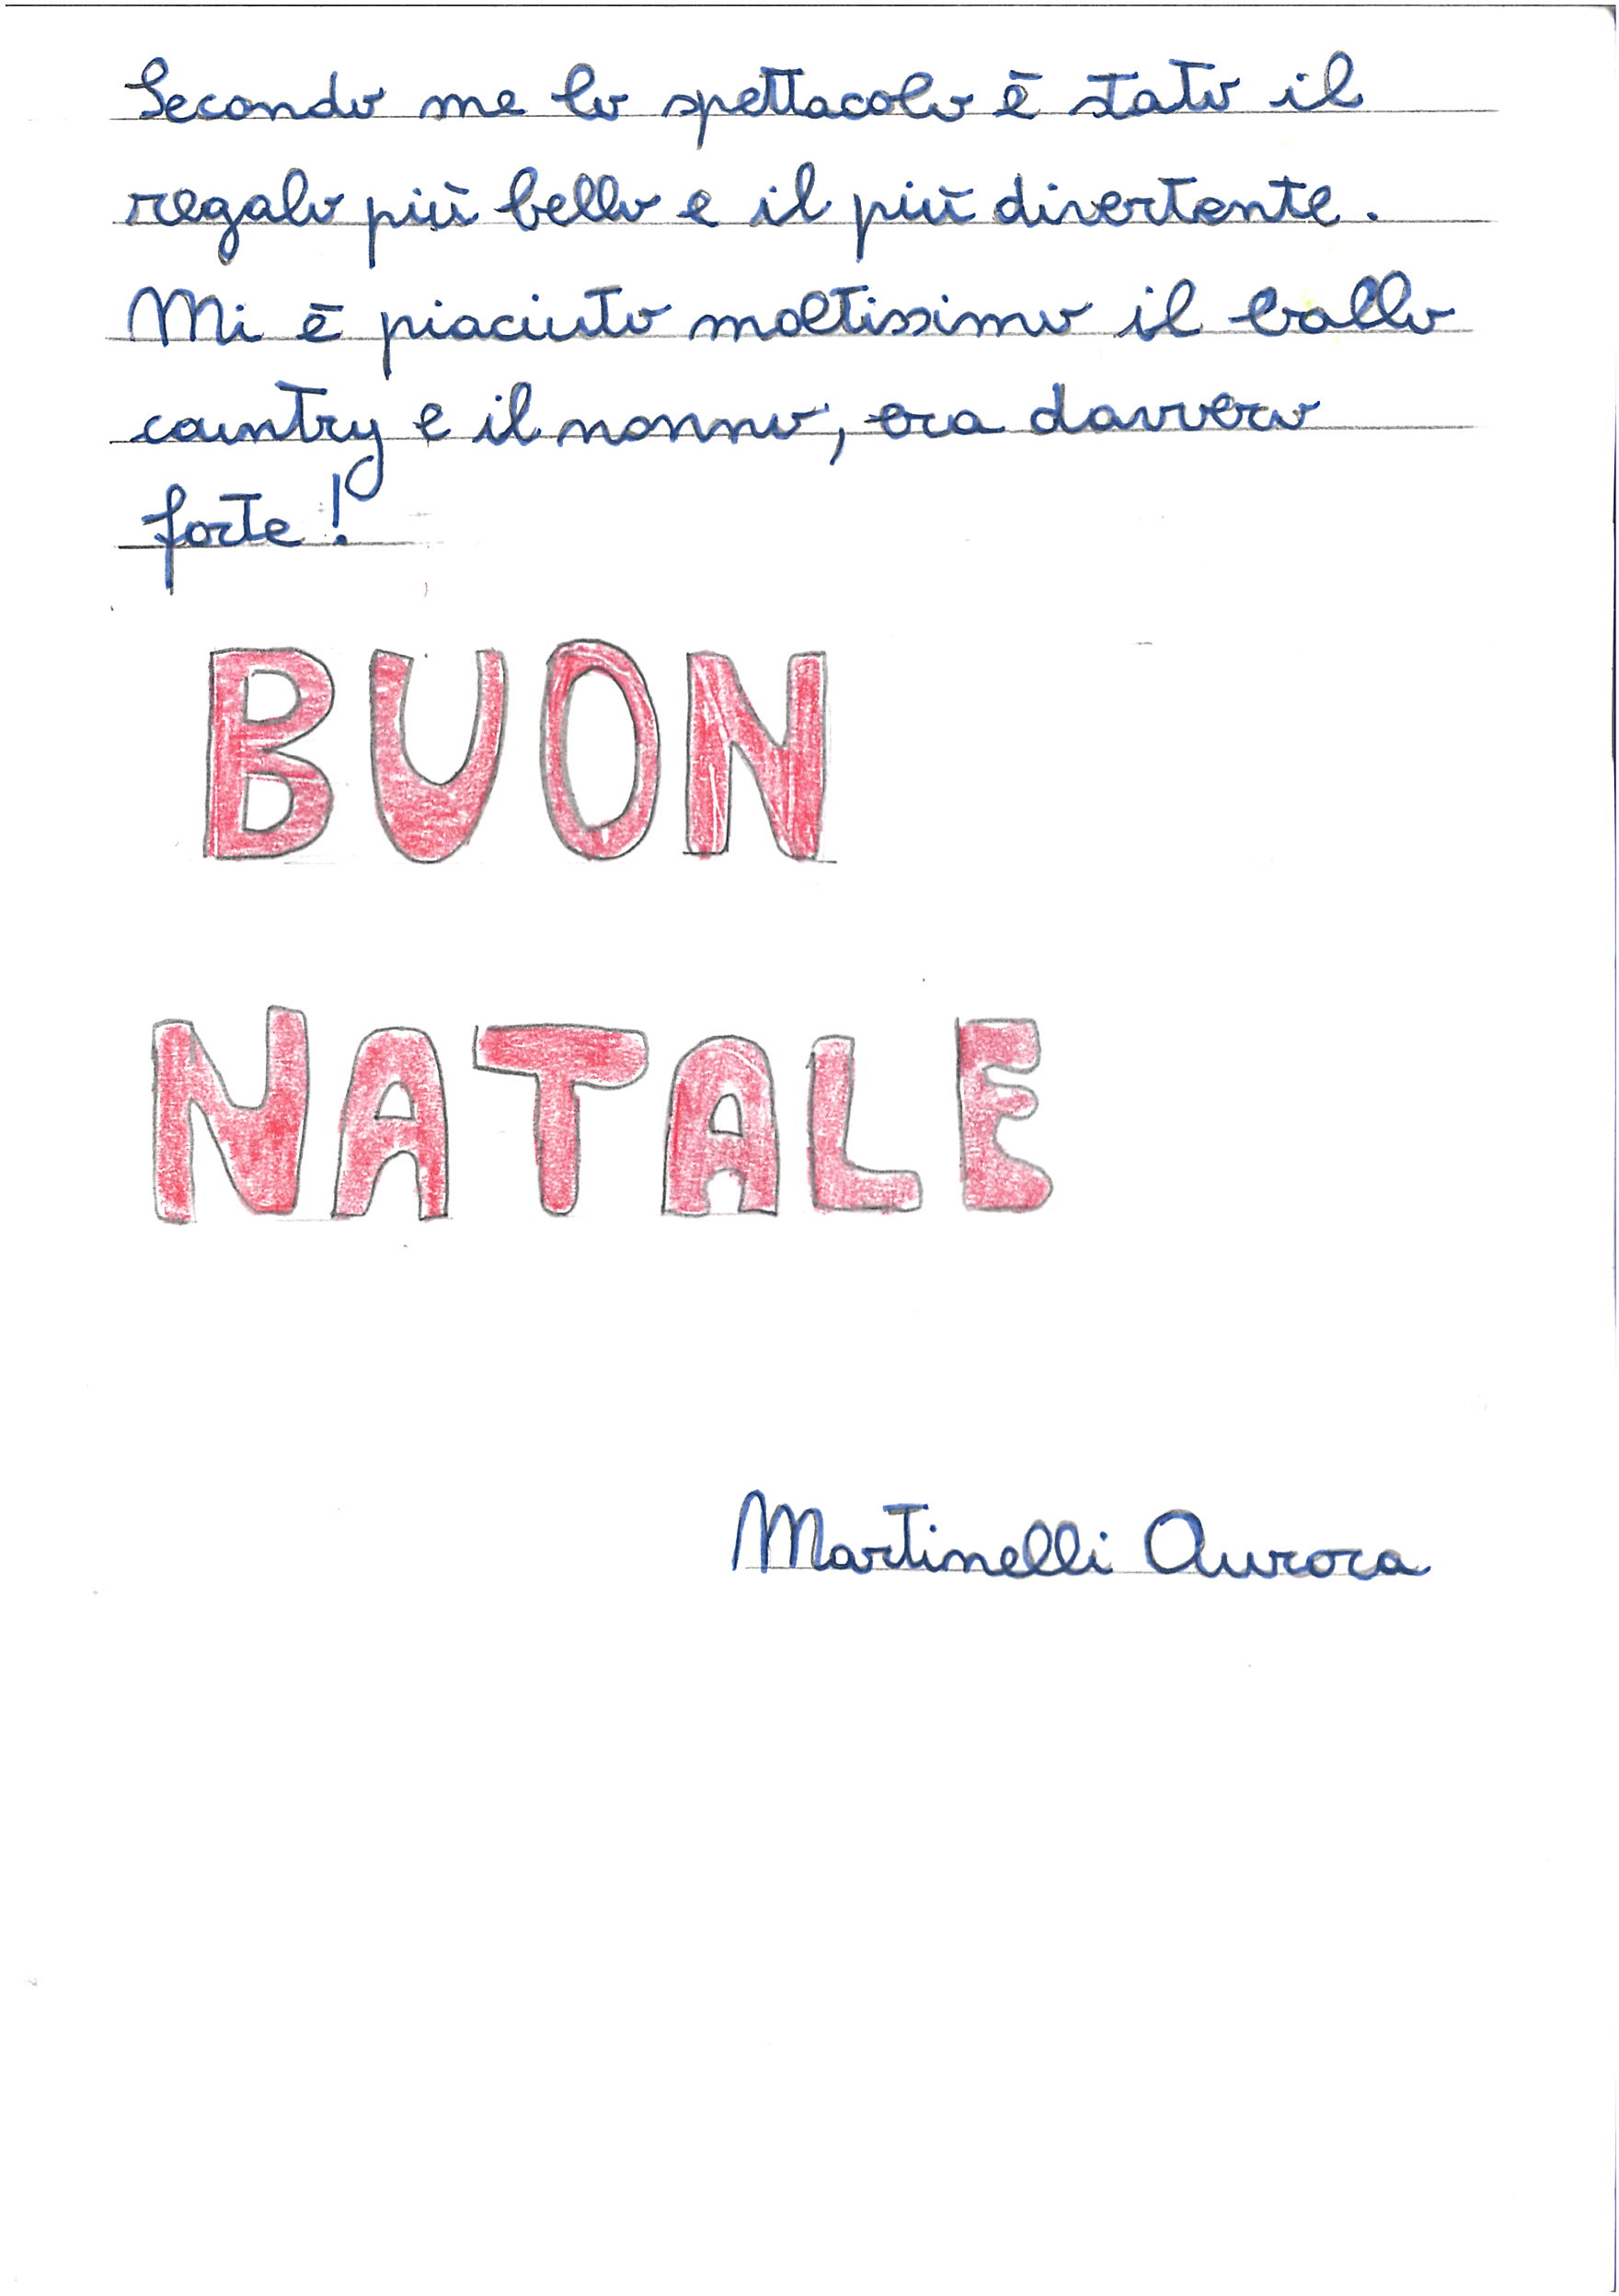 Secondo me lo spettacolo è stato il
regalo più bello e il più divertente.
Mi è piaciuto moltissimo il ballo
country e il nonno, era davvero
forte!
BUON
NATALE
Martinelli Aurora